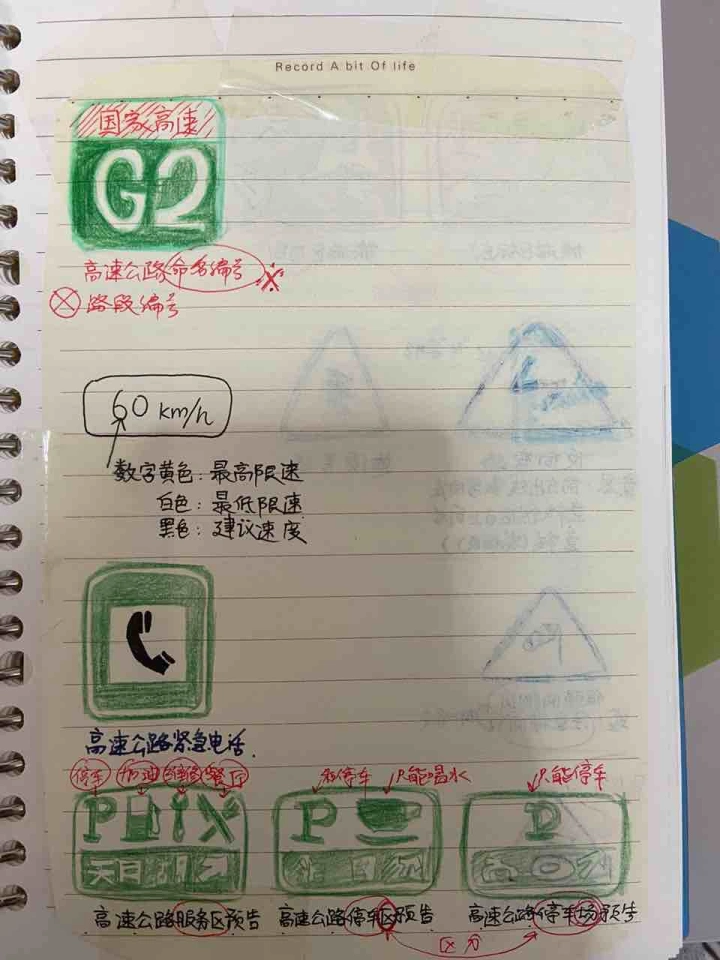 Record A bit Of life
国家高速
G2
高速公路命名编号
路段编号
60 km/h
数字黄色：最高限速
白色：最低限速
黑色：建议速度
高速公路紧急电话.
停车 加油 餐厅
P
天目湖
高速公路服务区预告
停车 只能喝水
P
高速公路停车区预告
只能停车
P
高速公路停车场预告
区分